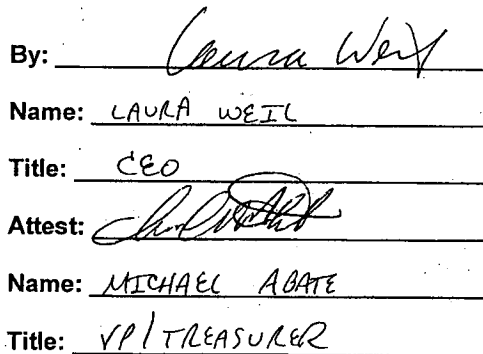 By: Laura Weil
Name: LAURA WEIL
Title: CEO
Attest:
Name: MICHAEL ABATE
Title: VP/TREASURER